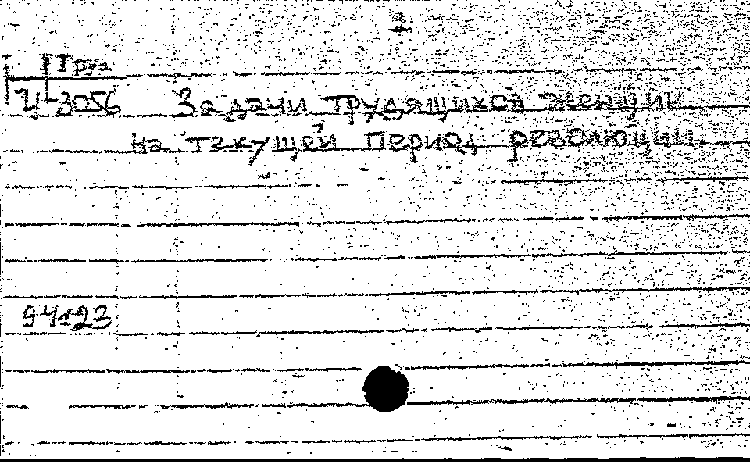 3
Груз
Ч-3056 Задачи трудящихся женщин
на текущей период революции.
94123